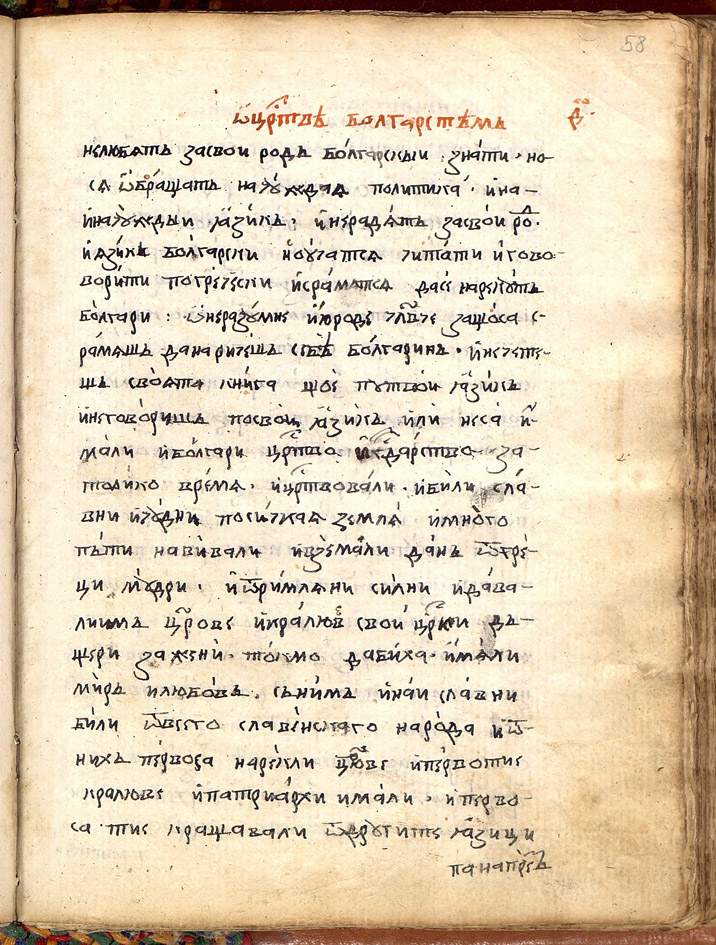 58
ѡ҆ цр҃твѣ болгарстѣмъ в҃
нелюбѧтъ засвои родъ болгарскыи знати · но
сѧ ѡ҆бращатъ на чꙋждаѧ политика · и҆на –
и҆на чꙋждыи ꙗ҆зикъ · и҆нерадѧтъ засвои ро҃д ·
и҆ ѧзикъ болгарски но ꙋчатсѧ читати и҆ гово-
ворити погречески и҆ срамѧтсѧ дасе нарекꙋтъ
болгари : ѡ҆ неразꙋмне и҆ юроде чл҃вче защоса с-
рамѧшъ да наричешъ себѣ болгаринъ · и҆нечете-
шъ своѧта книга що е пꙋтвои ꙗ҆зикъ
и҆неговоришъ посвои ꙗ҆зикъ или неса и҆-
мали и҆ болгари цр҃тво и҆ гдⷭарство за-
толико времѧ · и҆ цр҃твовали · и҆ били сла-
вни и҆ чюдни посичкаѧ землѧ и҆ много
пъти навивали и҆ вземали данъ ѿ гре-
ци мꙋдри · и҆ ѿ римлѧни силни и҆ дава-
лиимъ цр҃ове и҆ кралюве свои цр҃ки дъ-
щери за жени · токмо да биха имали
миръ и любовъ . сънимъ и҆наи славни
били ѿ всего славенскаго народа и҆ ѿ-
нихъ первоса нарекли цр҃ове и҆ первотие
кралюве и҆ патриархи имали · и҆ перво-
са тие кращавали ѿ дрꙋгите ꙗ҆зици